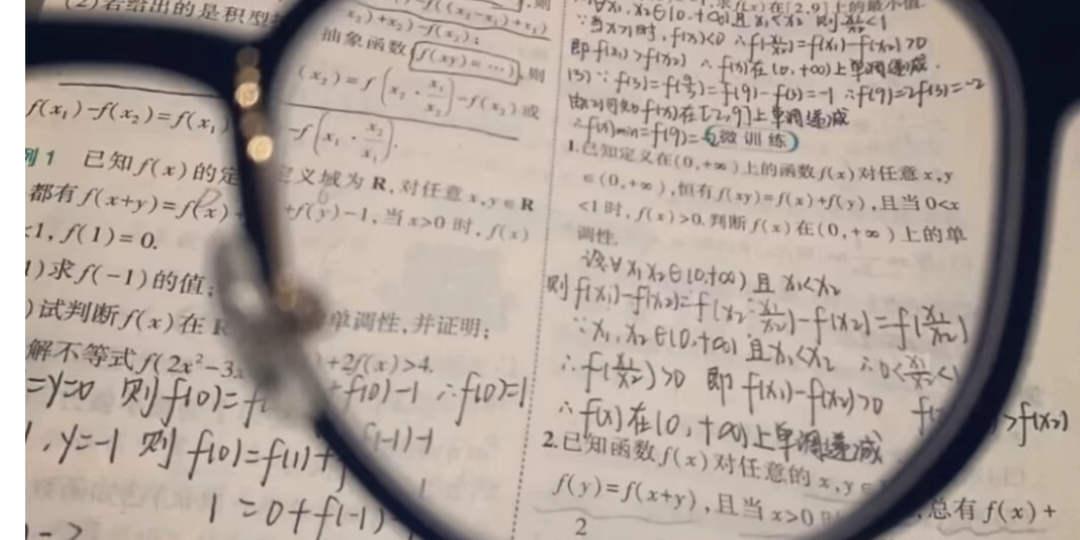 (2)若给出的是积型
抽象函数f(xy)=…,则
(x₂)=f(x₂·x₁/x₂)-f(x₂)或
f(x₁)-f(x₂)=f(x₁)
-f(x₁·x₂/x₁).
例1 已知f(x)的定义域为R,对任意x,y∈R
都有f(x+y)=f(x)+f(y)-1,当x>0时,f(x)
<1,f(1)=0.
)求f(-1)的值;
)试判断f(x)在R 单调性,并证明;
解不等式f(2x²-3x +2f(x)>4.
=y=0 则f(0)= +f(0)-1 ∴f(0)=1
,y=-1 则f(0)=f(1)+f(-1)-1
1=0+f(-1)
∀x₁,x₂∈(0,+∞)且x₁<x₂ 则x₁/x₂<1
当x>1时,f(x)<0 ∴f(x₁/x₂)=f(x₁)-f(x₂)>0
即f(x₁)>f(x₂) ∴f(x)在(0,+∞)上单调递减.
(3)∵f(3)=f(9/3)=f(9)-f(3)=-1 ∴f(9)=2f(3)=-2
由(2)可知f(x)在[2,9]上单调递减
∴f(x)min=f(9)=
微训练
1.已知定义在(0,+∞)上的函数f(x)对任意x,y
∈(0,+∞),恒有f(xy)=f(x)+f(y),且当0<x
<1时,f(x)>0.判断f(x)在(0,+∞)上的单
调性.
设∀x₁x₂∈(0,+∞)且x₁<x₂
则f(x₁)-f(x₂)=f(x₂·x₁/x₂)-f(x₂)=f(x₁/x₂)
∵x₁,x₂∈(0,+∞)且x₁<x₂ ∴0<x₁/x₂<1
∴f(x₁/x₂)>0 即f(x₁)-f(x₂)>0 >f(x₂)
∴f(x)在(0,+∞)上单调递减
2.已知函数f(x)对任意的x,y 总有f(x)+
f(y)=f(x+y),且当x>0时
2